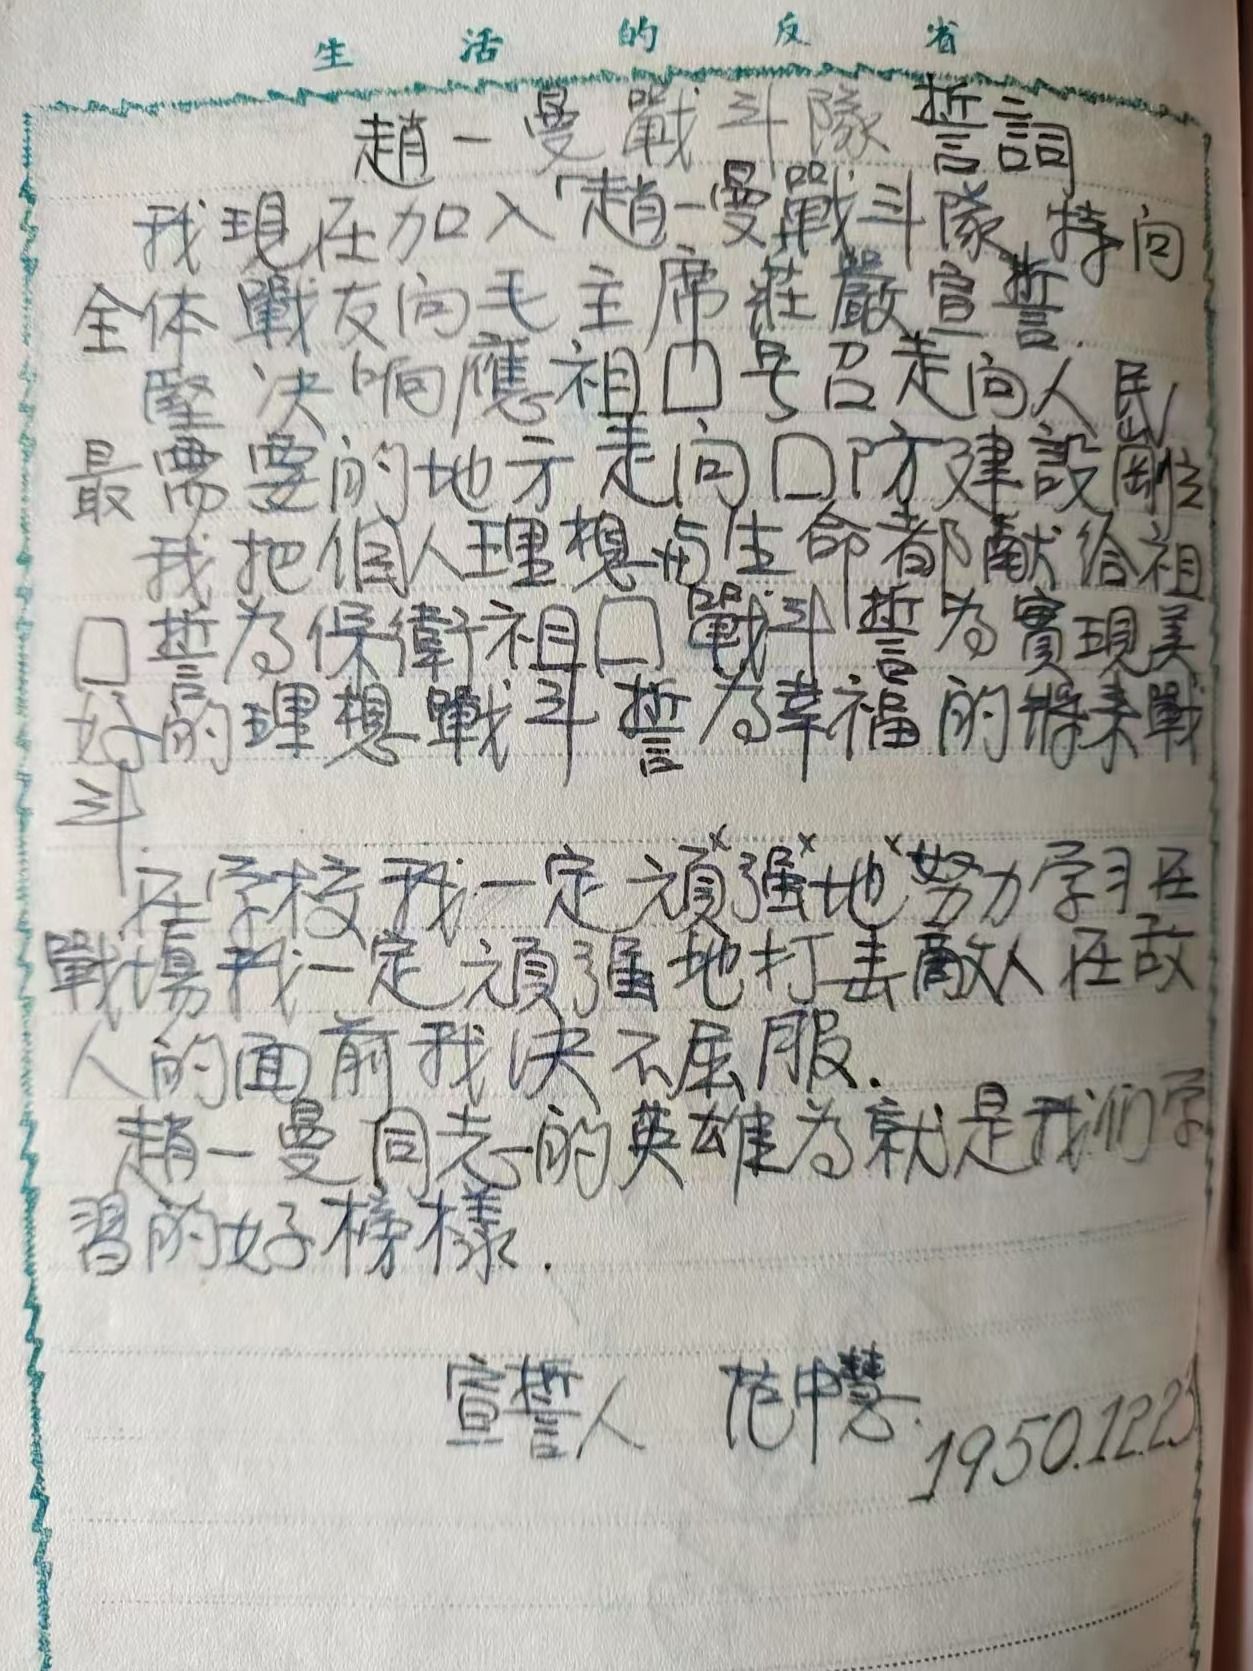 生活的反省
趙一曼戰斗隊誓詞
我現在加入「趙一曼戰斗隊 特向
全体戰友向毛主席莊嚴宣誓.
堅决响應祖囗号召走向人民
最需要的地方走向囗防建設崗位
我把個人理想与生命都献給祖
囗誓為保衛祖囗戰斗誓為實現美
好的理想戰斗誓為幸福的將来戰
斗.
在学校我一定頑强地努力学习在
戰場我一定頑强地打击敵人在敌
人的面前我决不屈服.
趙一曼同志的英雄為就是我们学
習的好榜樣.
宣誓人 范中慧.
1950.12.23